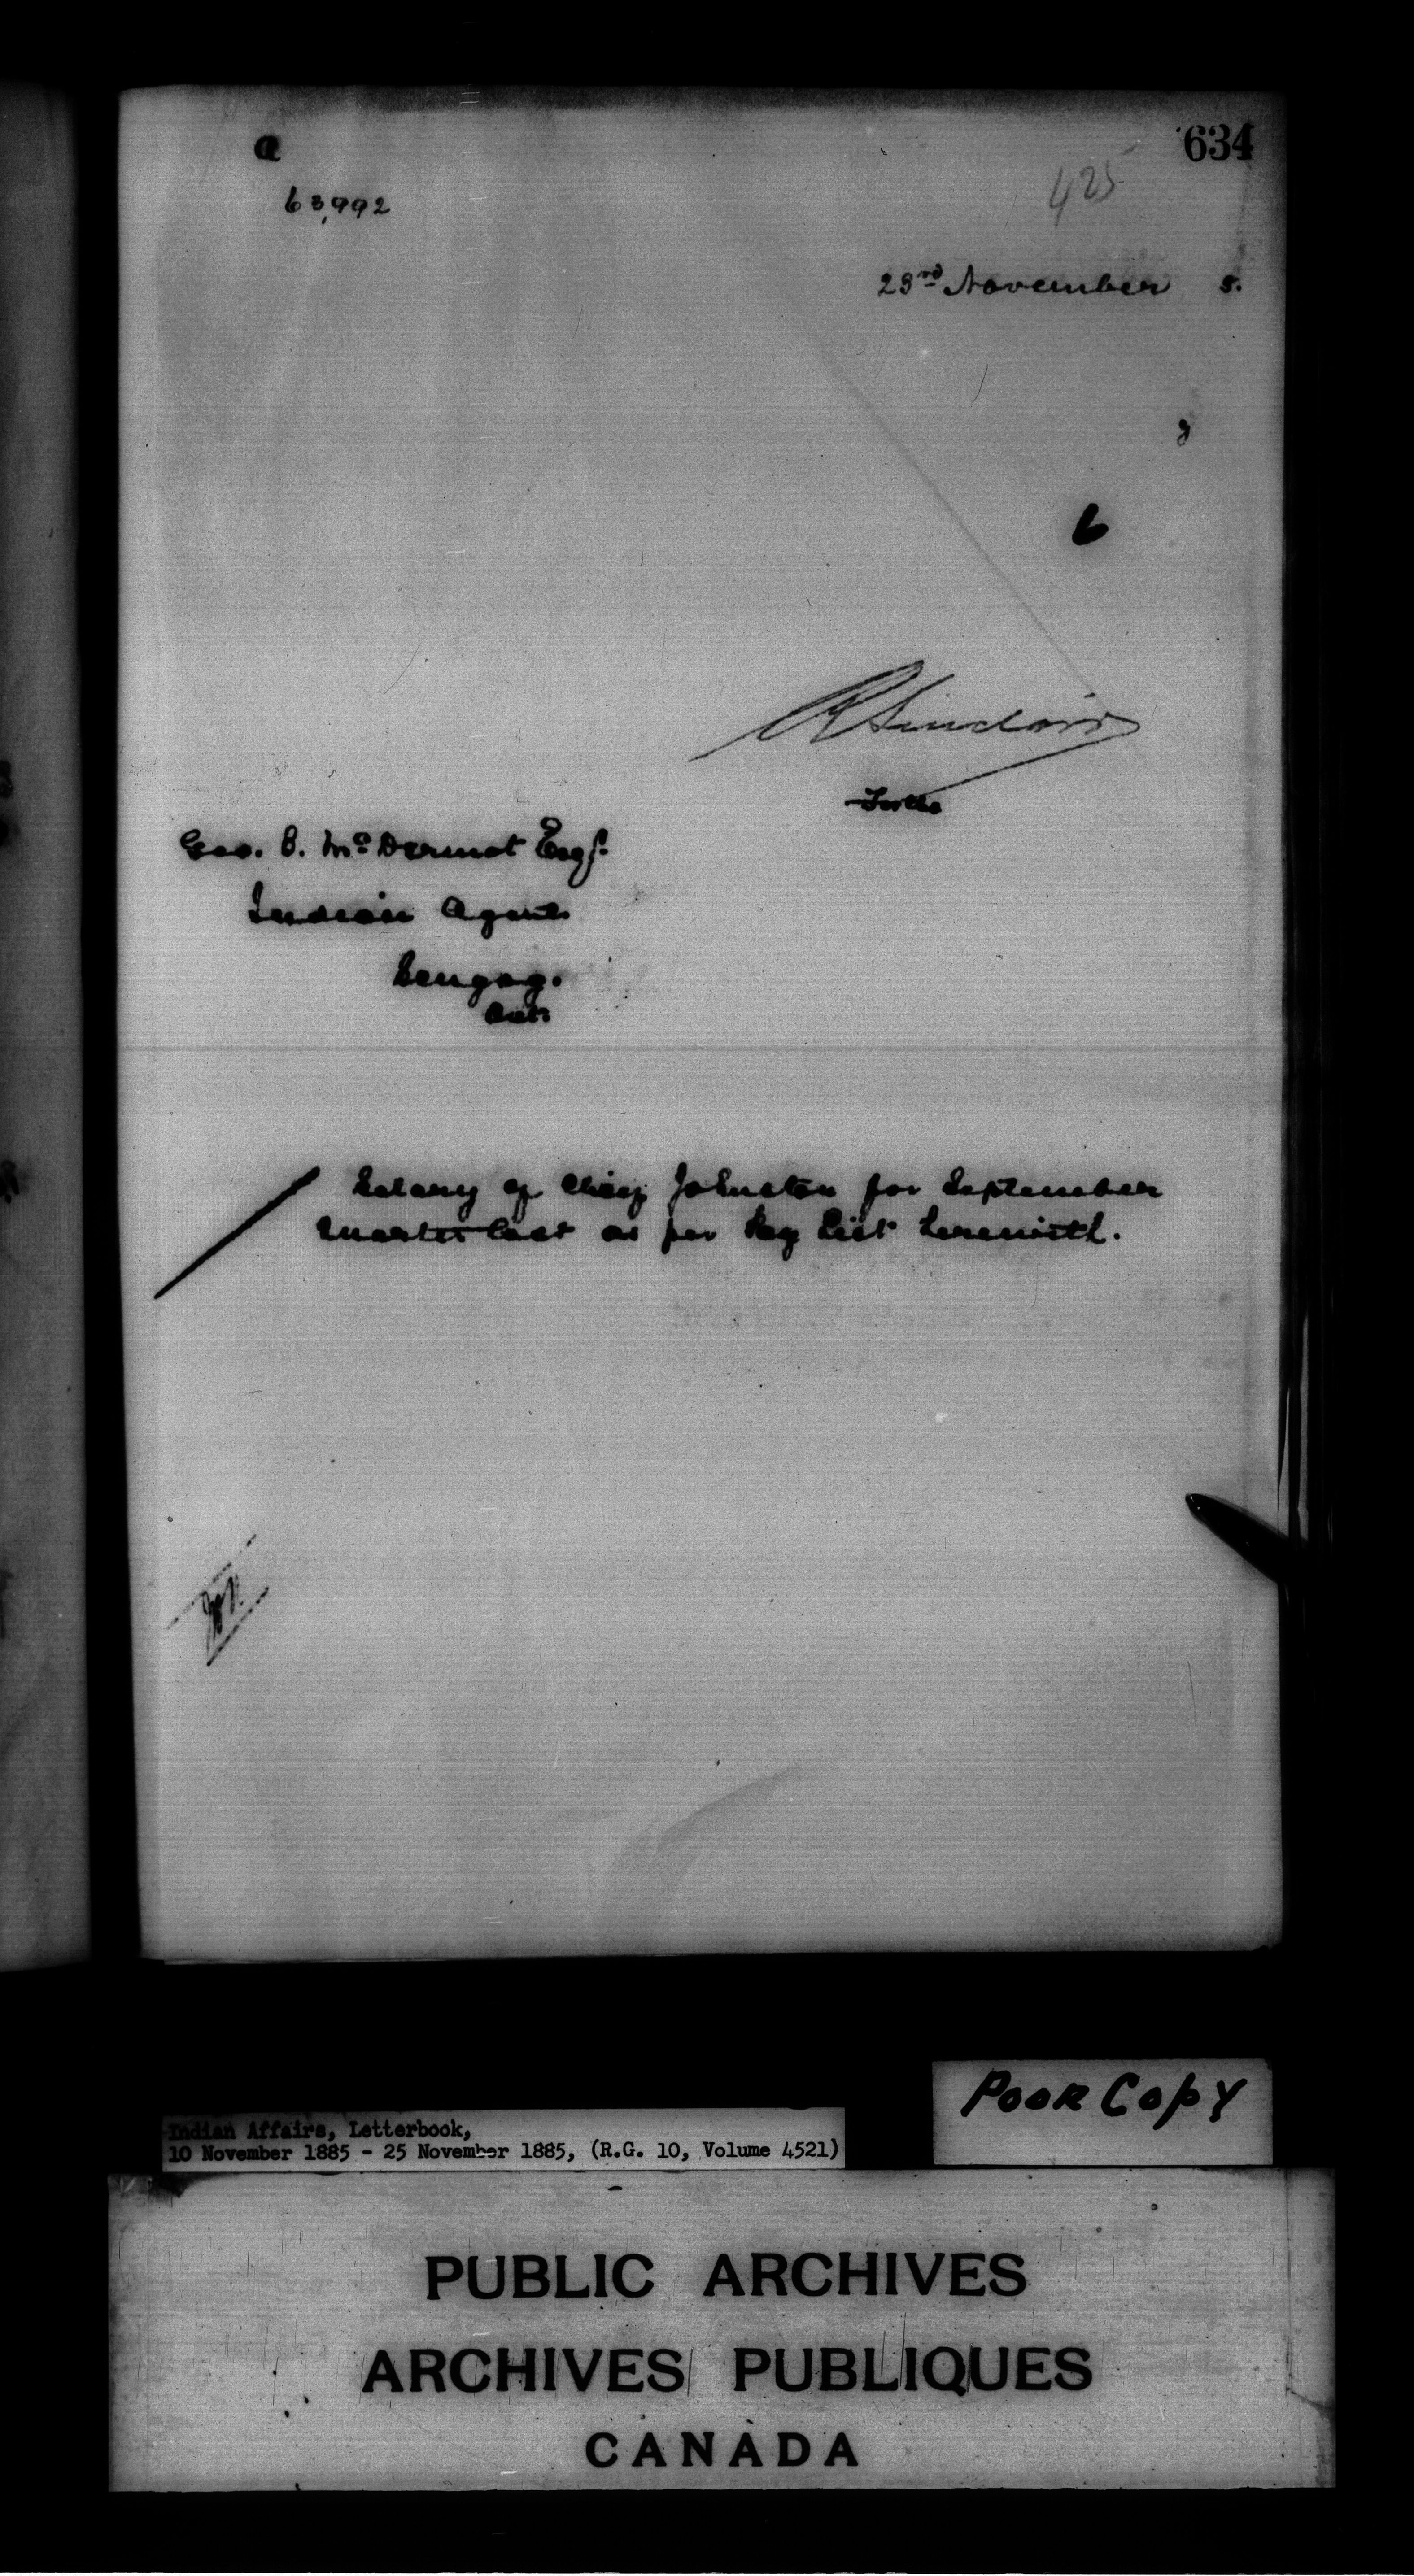 a
634
63,992
425
23rd November 5.
y
6
R Sinclair
For the
Geo. B. McDermot Esqr.
Indian Agent
Scugog.
Ont.
Salary of Chief Johnston for September
Quarter last as per Pay List herewith.
Poor Copy
Indian Affairs, Letterbook,
10 November 1885 - 25 November 1885, (R.G. 10, Volume 4521)
PUBLIC ARCHIVES
ARCHIVES PUBLIQUES
CANADA